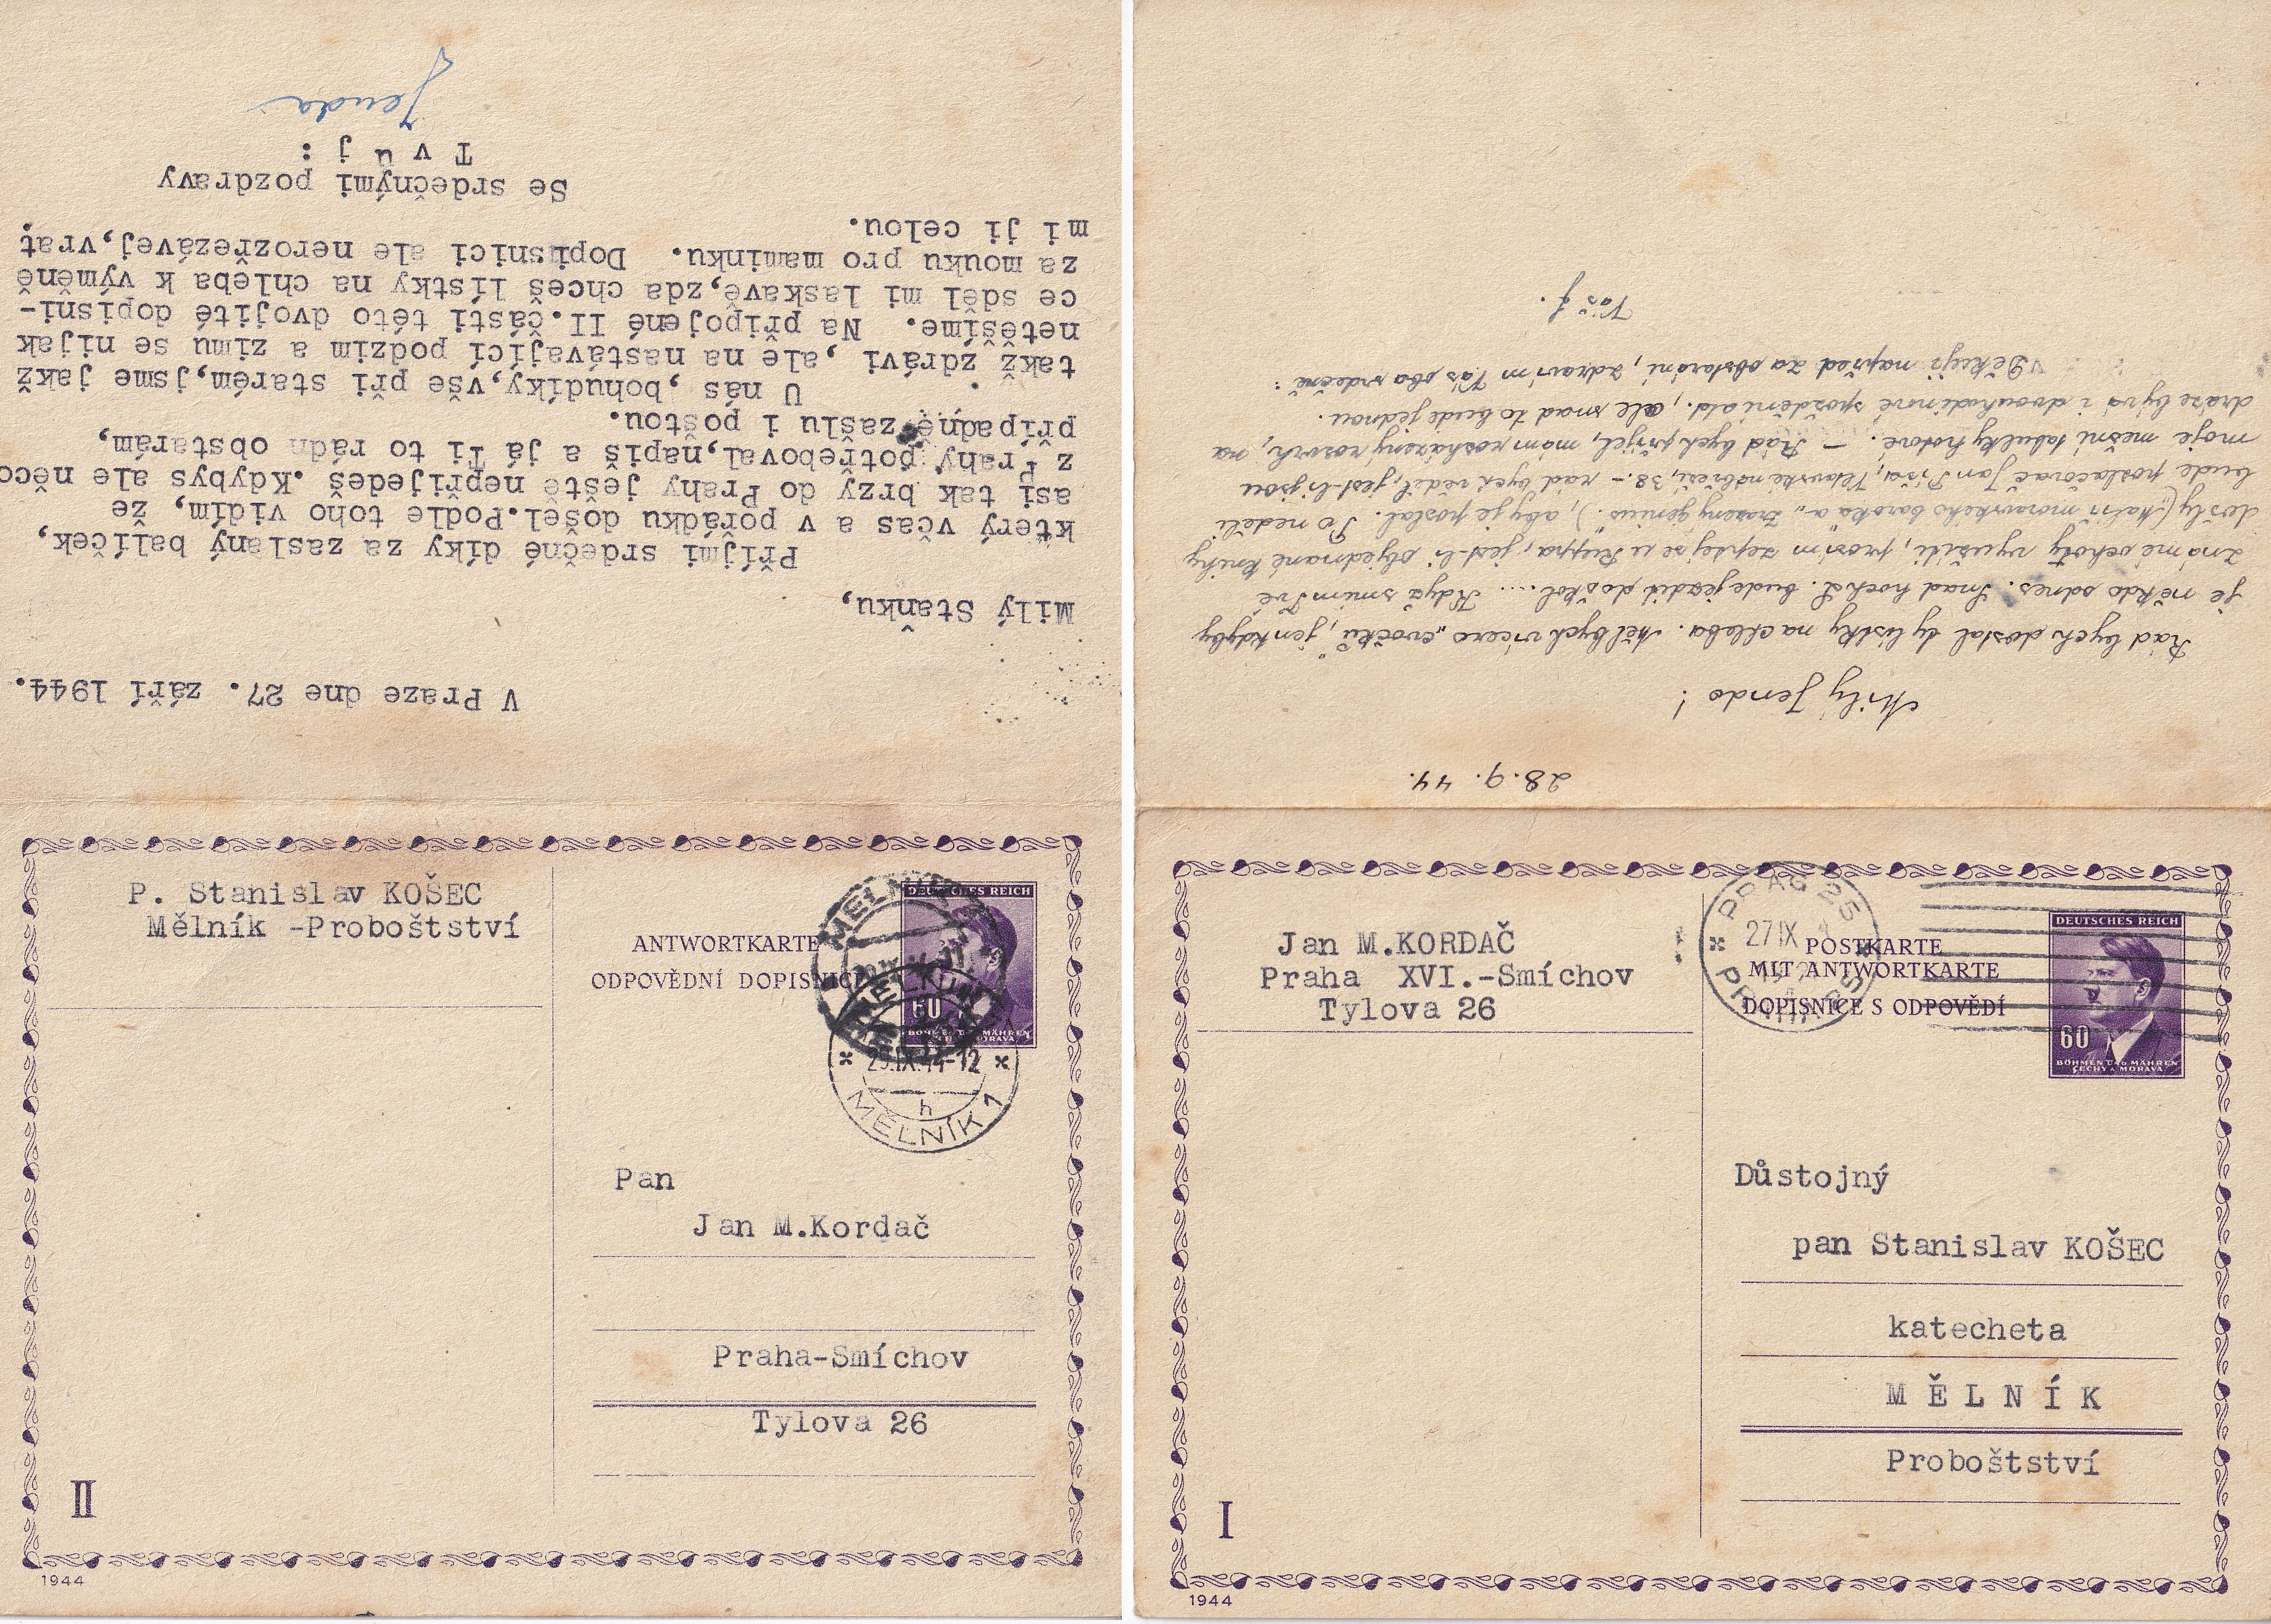 V Praze dne 27. září 1944.
Milý Staňku,
Přijmi srdečné díky za zaslaný balíček,
který včas a v pořádku došel.Podle toho vidím, že
asi tak brzy do Prahy ještě nepřijedeš .Kdybys ale něco
z Prahy potřeboval,napiš a já Ti to rádn obstarám,
případně zašlu i poštou.
U nás ,bohudíky,vše při starém,jsme jakž
takž zdrávi ,ale na nastávající podzim a zimu se nijak
netěšíme. Na připojené II.části této dvojité dopisni-
ce sděl mi laskavě,zda chceš lístky na chleba k výměně
za mouku pro maminku. Dopisnici ale nerozřezávej,vrať
mi ji celou.
Se srdečnými pozdravy
T v ů j :
Jenda
P. Stanislav KOŠEC
Mělník -Proboštství
ANTWORTKARTE
ODPOVĚDNÍ DOPISNICE
DEUTSCHES REICH
60
BÖHMEN UND MÄHREN
ČECHY A MORAVA
29.IX.44-12
h
MĚLNÍK 1
Pan
Jan M.Kordač
Praha-Smíchov
Tylova 26
II
1944
28. 9. 44.
Milý Jendo !
Rád bych dostal ty lístky na chleba. Měl bych vícero "cvočků", jen kdyby
je někdo odnes. Snad hoch L. bude jezdit do škol.... Když smím Tvé
známé ochoty využíti, prosím zeptej se u Kuppa, jest-li objednané knihy
došly ("Malíř moravského baroka a "Zrazený genius"), aby je poslal. Po neděli
bude poslačovač Jan Píša, Vltavské nábřeží, 38. - rád bych věděl, jest-li jsou
moje mešní tabulky hotové. — Rád bych přijel, mám rozházený rozvrh, na
dráze bývá i dvouhodinové spoždění atd., ale snad to bude jednou.
Děkuji napřed za obstarání, zdravím Vás oba srdečně :
Váš
Jan M.KORDAČ
Praha XVI.-Smíchov
Tylova 26
PRAG 25
27 IX
PRAHA 25
POSTKARTE
MIT ANTWORTKARTE
DOPISNICE S ODPOVĚDÍ
DEUTSCHES REICH
60
BÖHMEN UND MÄHREN
ČECHY A MORAVA
Důstojný
pan Stanislav KOŠEC
katecheta
M Ě L N Í K
Proboštství
I
1944